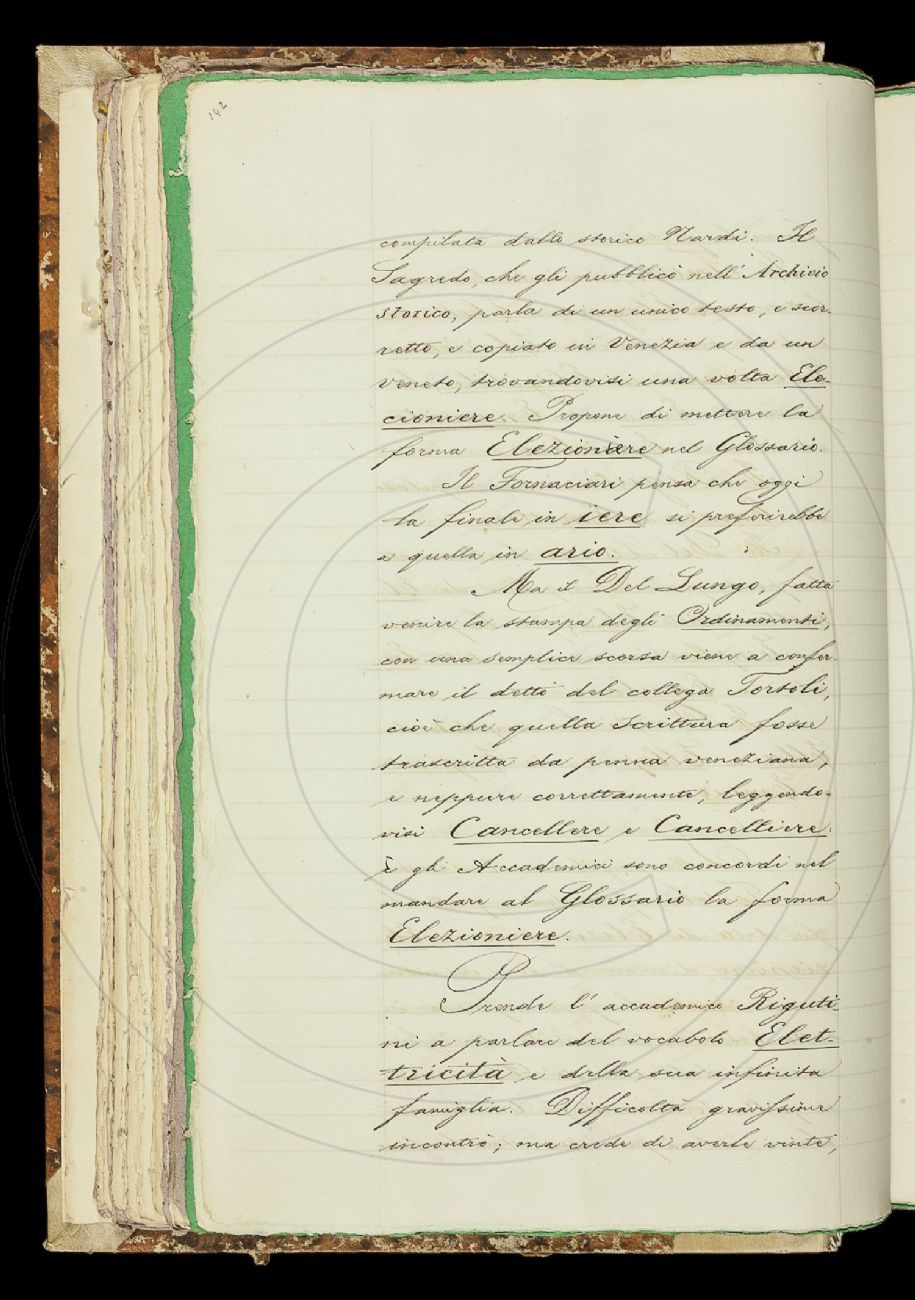 142
compilata dallo storico Nardi. Il
Sagredo, che gli pubblicò nell'Archivio
storico, parla di un unico testo, e scor-
retto, e copiato in Venezia e da un
veneto, trovandovisi una volta Ele-
cioniere. Propone di mettere la
forma Elezionière nel Glossario.
Il Fornaciari pensa che oggi
la finale in iere si preferirebbe
a quella in ario.
Ma il Del Lungo, fatta
venire la stampa degli Ordinamenti,
con una semplice scorsa viene a confer-
mare il detto del collega Tortoli,
cioè che quella scrittura fosse
trascritta da penna veneziana,
e neppure correttamente, leggendo-
visi Cancellere e Cancelliere.
E gli Accademici sono concordi nel
mandare al Glossario la forma
Elezioniere.
Prende l'accademico Riguti-
ni a parlare del vocabolo Elet-
tricità e della sua infinita
famiglia. Difficoltà gravissime
incontrò; ma crede di averle vinte,